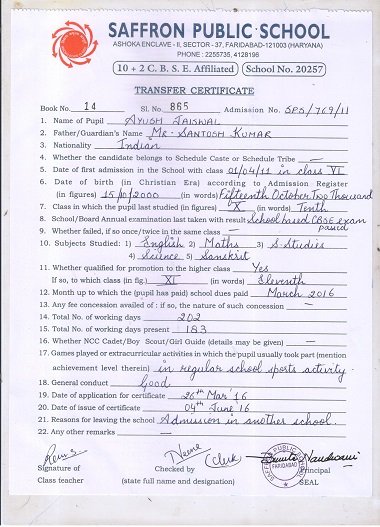 SAFFRON PUBLIC SCHOOL
ASHOKA ENCLAVE - II, SECTOR - 37, FARIDABAD-121003 (HARYANA)
PHONE : 2255735, 4128196
10 + 2 C. B. S. E. Affiliated School No. 20257
TRANSFER CERTIFICATE
Book No. 14 Sl. No. 865 Admission No. SPS/769/11
1. Name of Pupil Ayush Jaiswal
2. Father/Guardian's Name Mr. Santosh Kumar
3. Nationality Indian
4. Whether the candidate belongs to Schedule Caste or Schedule Tribe —
5. Date of first admission in the School with class 01/04/11 in class VI
6. Date of birth (in Christian Era) according to Admission Register
(in figures) 15/10/2000 (in words) Fifteenth October Two Thousand
7. Class in which the pupil last studied (in figures) X (in words) Tenth
8. School/Board Annual examination last taken with result School based CBSE exam
passed
9. Whether failed, if so once/twice in the same class —
10. Subjects Studied: 1) English 2) Maths 3) S.Studies
4) Science 5) Sanskrit
11. Whether qualified for promotion to the higher class Yes
If so, to which class (in fig.) XI (in words) Eleventh
12. Month up to which the (pupil has paid) school dues paid March 2016
13. Any fee concession availed of : if so, the nature of such concession
14. Total No. of working days 202
15. Total No. of working days present 183
16. Whether NCC Cadet/Boy Scout/Girl Guide (details may be given) —
17. Games played or extracurricular activities in which the pupil usually took part (mention
achievement level therein) in regular school sports activity.
18. General conduct Good
19. Date of application for certificate 26th Mar' 16
20. Date of issue of certificate 04th June 16
21. Reasons for leaving the school Admission in another school.
22. Any other remarks —
(Clerk)
Signature of Checked by Principal
Class teacher (state full name and designation) SEAL
FARIDABAD